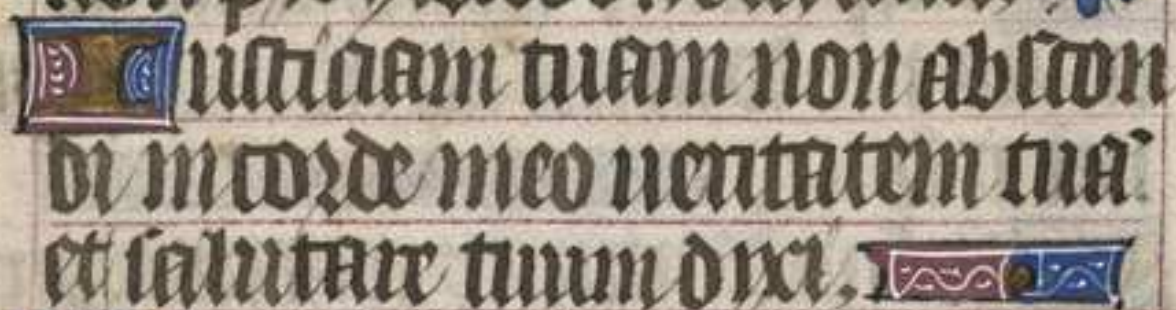 Iusticiam tuam non abscon
di in corde meo ueritatem tuā
et salutare tuum dixi.